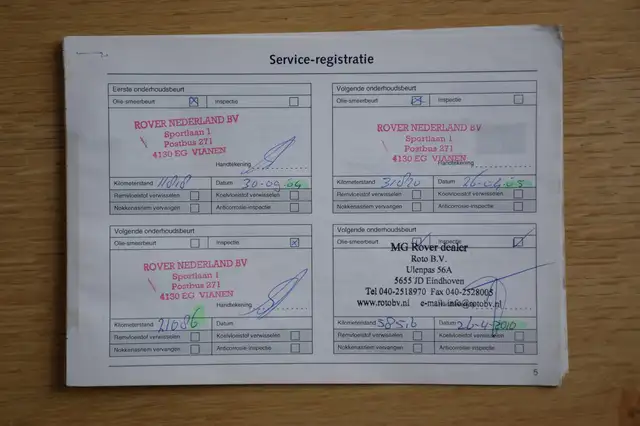 Service-registratie
Eerste onderhoudsbeurt
Olie-smeerbeurt Inspectie
ROVER NEDERLAND BV
Sportlaan 1
Postbus 271
4130 EG VIANEN
Handtekening
Kilometerstand 11818 Datum 30-09-04
Remvloeistof verwisselen Koelvloeistof verwisselen
Nokkenasriem vervangen Anticorrosie-inspectie
Volgende onderhoudsbeurt
Olie-smeerbeurt Inspectie
ROVER NEDERLAND BV
Sportlaan 1
Postbus 271
4130 EG VIANEN
Handtekening
Kilometerstand 31820 Datum 26-04-05
Remvloeistof verwisselen Koelvloeistof verwisselen
Nokkenasriem vervangen Anticorrosie-inspectie
Volgende onderhoudsbeurt
Olie-smeerbeurt Inspectie
ROVER NEDERLAND BV
Sportlaan 1
Postbus 271
4130 EG VIANEN
Handtekening
Kilometerstand 21086 Datum
Remvloeistof verwisselen Koelvloeistof verwisselen
Nokkenasriem vervangen Anticorrosie-inspectie
Volgende onderhoudsbeurt
Olie-smeerbeurt Inspectie
MG Rover dealer
Roto B.V.
Ulenpas 56A
5655 JD Eindhoven
Tel 040-2518970 Fax 040-2528005
www.rotobv.nl e-mail: info@rotobv.nl
Kilometerstand 58516 Datum 26-4-2010
Remvloeistof verwisselen Koelvloeistof verwisselen
Nokkenasriem vervangen Anticorrosie-inspectie
5